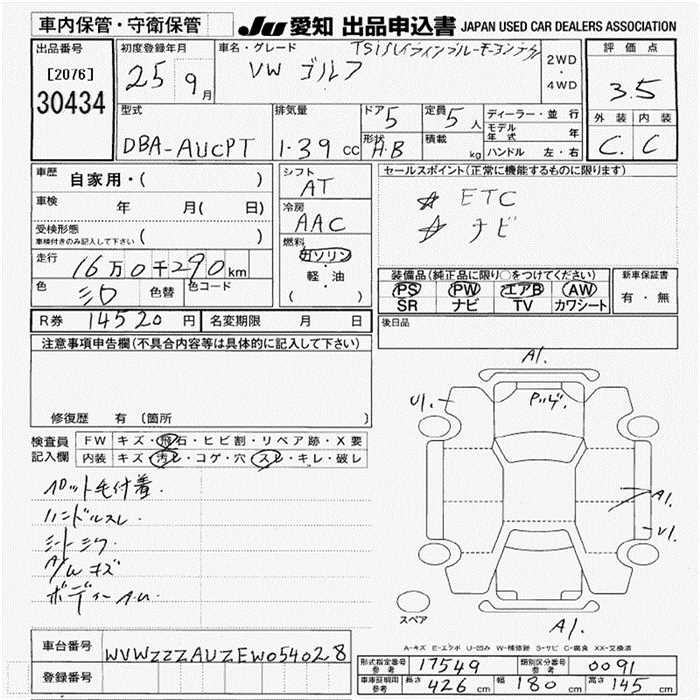 車内保管・守衛保管 JU 愛知 出品申込書 JAPAN USED CAR DEALERS ASSOCIATION
出品番号 [2076] 30434
初度登録年月 25 9月
車名・グレード VW ゴルフ
2WD・4WD
評価点 3.5
外装 C. 内装 C
型式 DBA-AUCPT
排気量 1.39 cc
ドア 5
形状 H.B
定員 5人
積載 kg
ディーラー・並行
モデル年式 年
ハンドル 左・右
車歴 自家用・( )
車検 年 月( 日)
受検形態 車検付きのみ記入して下さい ( )
走行 16万0千290km
色 シロ 色替 色コード
シフト AT
冷房 AAC
燃料 ガソリン・軽・油 ( )
セールスポイント(正常に機能するものに限ります)
☆ ETC
☆ ナビ
装備品(純正品に限り○をつけてください)
PS PW エアB AW
SR ナビ TV カワシート
新車保証書 有・無
R券 14520円 名変期限 月 日
後日品
注意事項申告欄(不具合内容等は具体的に記入して下さい)
修復歴 有 〔箇所 〕
検査員記入欄
FW キズ・飛石・ヒビ割・リペア跡・X要
内装 キズ・汚レ・コゲ・穴・スレ・キレ・破レ
ペット毛付着
ハンドルスレ.
シートシワ
A/Wキズ
ボディーA.U.
A1.
U1.
A1.
U1.
A1.
スペア
A-キズ E-エクボ U-凹み W-補修跡 S-サビ C-腐食 XX-交換済
車台番号 WVWZZZAUZEW054028
登録番号
形式指定番号 参考 17549 類別区分番号 参考 0091
車庫証明用 参考 長さ 426 cm 幅 180 cm 高さ 145 cm